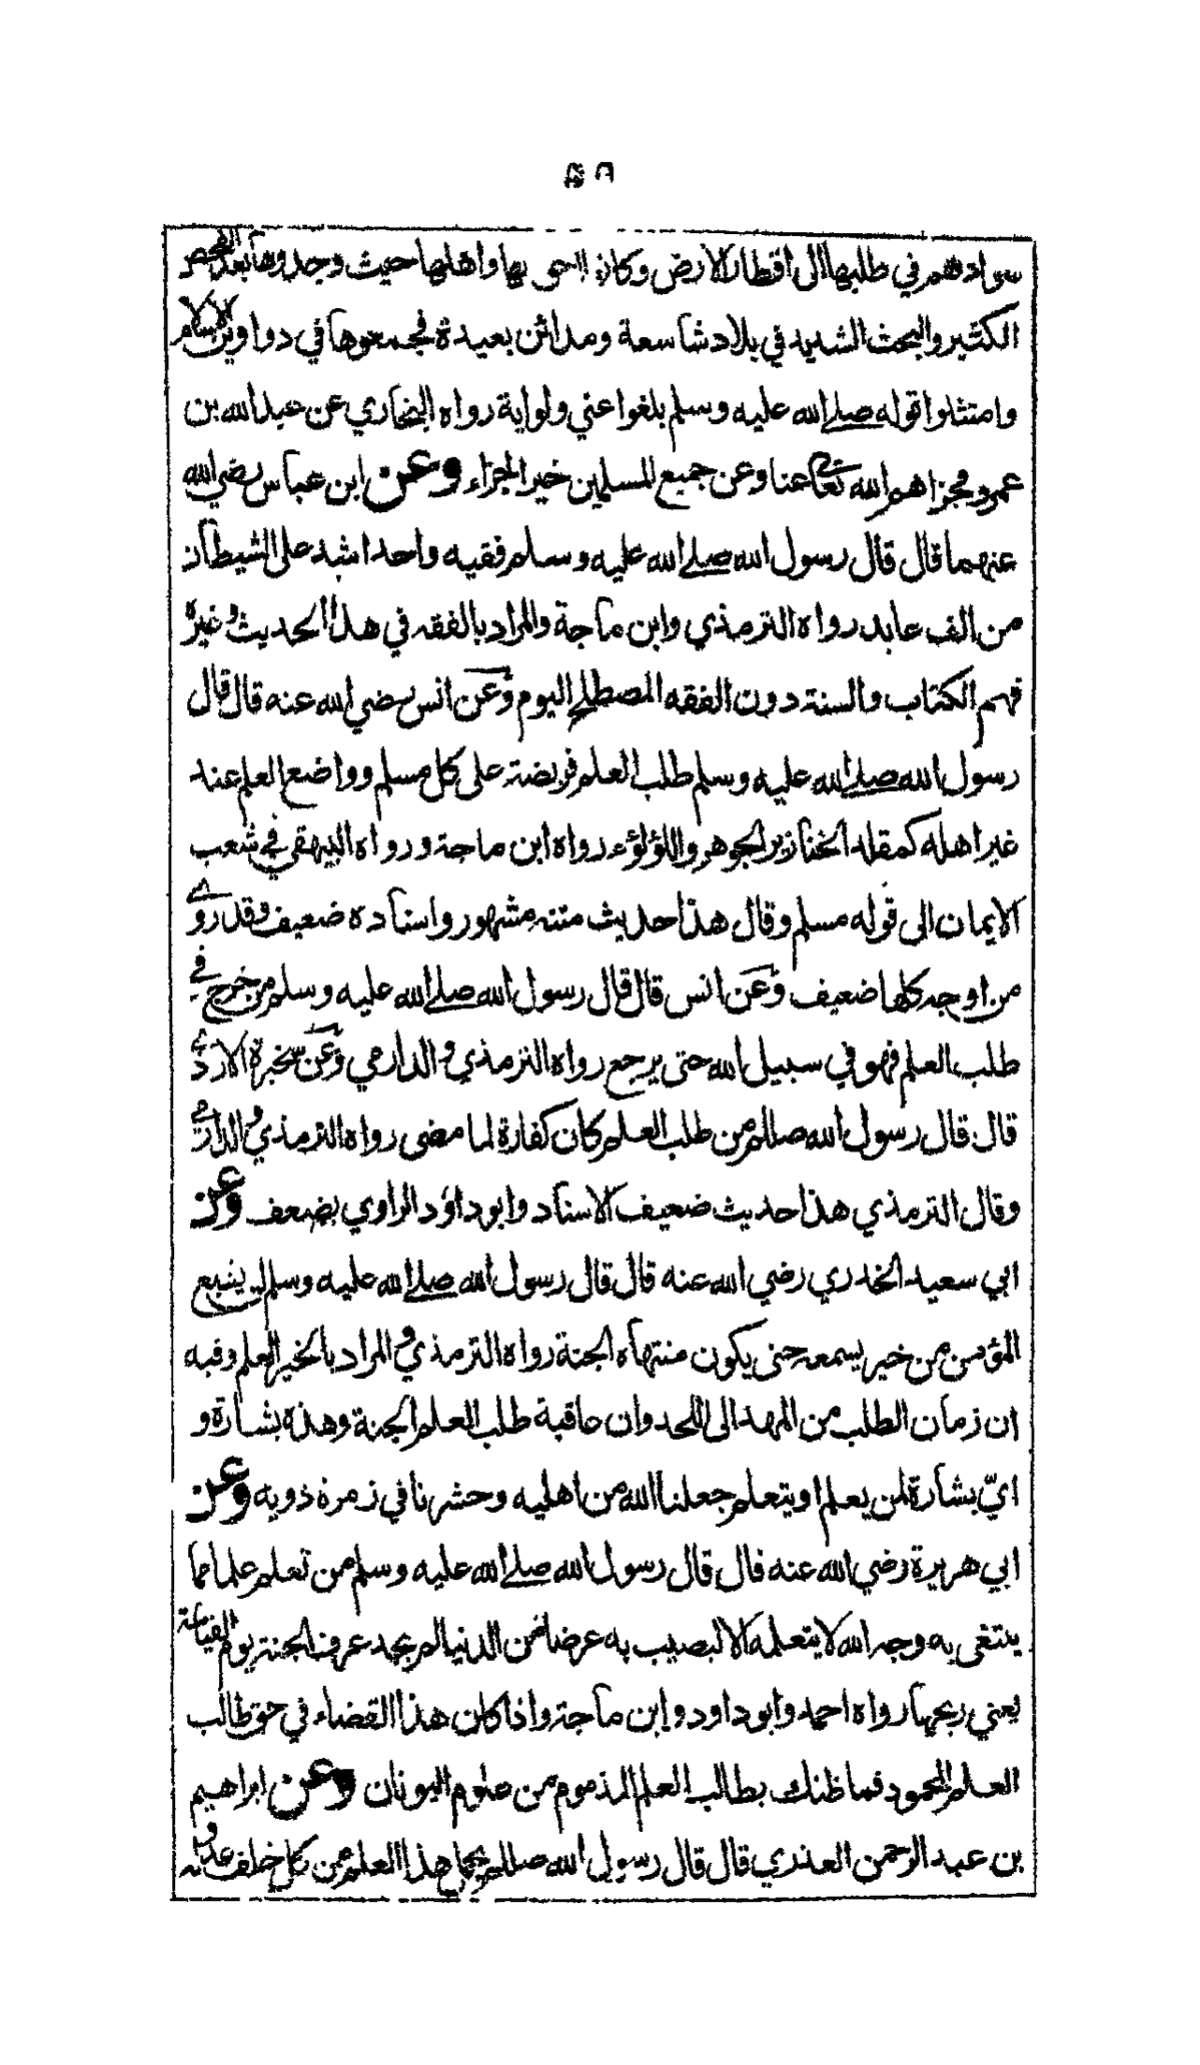 ٥٨
سوادهم في طلبها الى اقطار الارض وكانوا احق بها واهلها حيث وجدوها بعد الفحص
الكثير والبحث الشديد في بلاد شاسعة ومدائن بعيدة فجمعوها في دواوين الاسلام
وامتثلوا قوله صلى الله عليه وسلم بلغوا عني ولو اية رواه البخاري عن عبد الله بن
عمرو فجزاهم الله تعالى عنا وعن جميع المسلمين خير الجزاء وعن ابن عباس رضي الله
عنهما قال قال رسول الله صلى الله عليه وسلم فقيه واحد اشد على الشيطان
من الف عابد رواه الترمذي وابن ماجة والمراد بالفقه في هذا الحديث وغيره
فهم الكتاب والسنة دون الفقه المصطلح اليوم وعن انس رضي الله عنه قال قال
رسول الله صلى الله عليه وسلم طلب العلم فريضة على كل مسلم وواضع العلم عند
غير اهله كمقلد الخنازير الجوهر واللؤلؤء رواه ابن ماجة ورواه البيهقي في شعب
الايمان الى قوله مسلم وقال هذا حديث متنه مشهور واسناده ضعيف وقد روي
من اوجه كلها ضعيف وعن انس قال قال رسول الله صلى الله عليه وسلم من خرج في
طلب العلم فهو في سبيل الله حتى يرجع رواه الترمذي والدارمي وعن سخبرة الازدي
قال قال رسول الله صللم من طلب العلم كان كفارة لما مضى رواه الترمذي والدارمي
وقال الترمذي هذا حديث ضعيف الاسناد وابو داؤد الراوي يضعف وعن
ابي سعيد الخدري رضي الله عنه قال قال رسول الله صلى الله عليه وسلم لن يشبع
المؤمن من خير يسمعه حتى يكون منتهاه الجنة رواه الترمذي والمراد بالخير العلم وفيه
ان زمان الطلب من المهد الى اللحد وان عاقبة طلب العلم الجنة وهذه بشارة و
ايّ بشارة لمن يعلم او يتعلم جعلنا الله من اهليه وحشرنا في زمرة ذويه وعن
ابي هريرة رضي الله عنه قال قال رسول الله صلى الله عليه وسلم من تعلم علما مما
يبتغى به وجه الله لا يتعلمه الا ليصيب به عرضا من الدنيا لم يجد عرف الجنة يوم القيامة
يعني ريحها رواه احمد وابو داود وابن ماجة واذا كان هذا القضاء في حق طالب
العلم المحمود فما ظنك بطالب العلم المذموم من علوم اليونان وعن ابراهيم
بن عبد الرحمن العذري قال قال رسول الله صللم يحمل هذا العلم من كل خلف عدوله